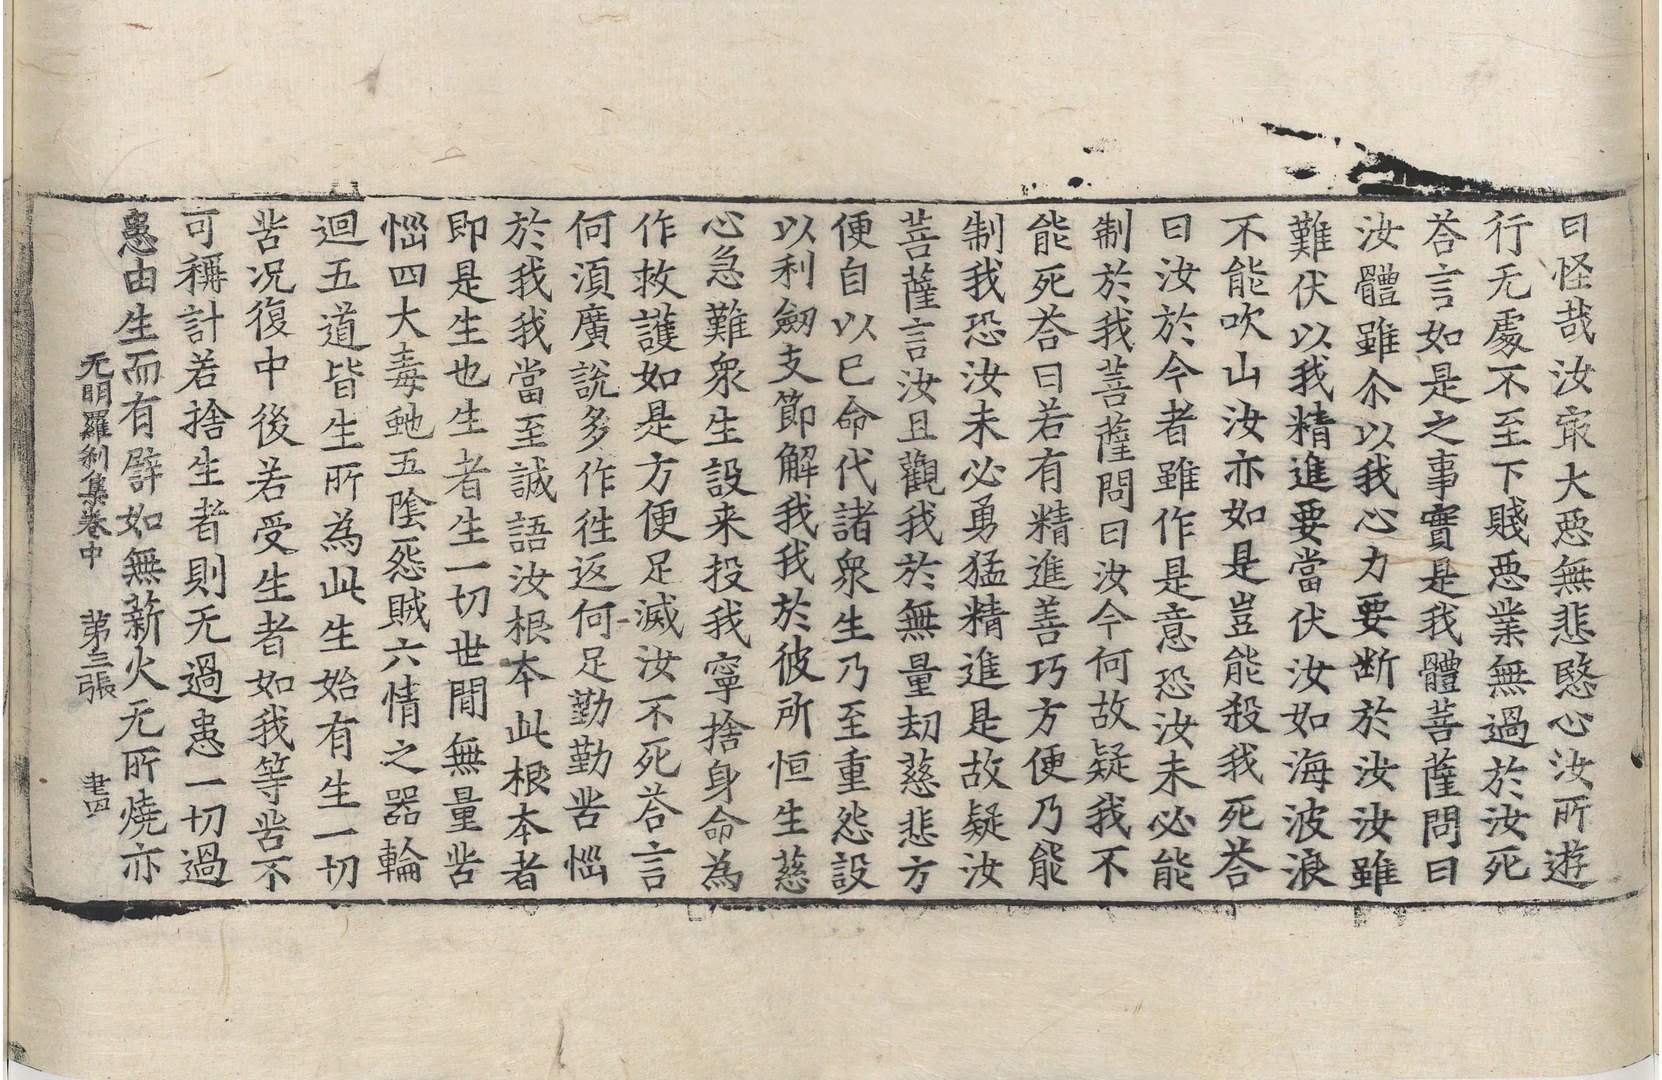 曰怪哉汝㝡大惡無悲愍心汝所遊
行无處不至下賤惡業無過於汝死
荅言如是之事實是我體菩薩問曰
汝體雖尒以我心力要断於汝汝雖
難伏以我精進要當伏汝如海波浪
不能吹山汝亦如是豈能殺我死荅
曰汝於今者雖作是意恐汝未必能
制於我菩薩問曰汝今何故疑我不
能死荅曰若有精進善巧方便乃能
制我恐汝未必勇猛精進是故疑汝
菩薩言汝且觀我於無量劫慈悲方
便自以已命代諸衆生乃至重怨設
以利劒支節解我我於彼所恒生慈
心急難衆生設来投我寧捨身命為
作救護如是方便足滅汝不死荅言
何湏廣說多作徃返何足勤勤苦惱
於我我當至誠語汝根本此根本者
即是生也生者生一切世間無量苦
惱四大毒虵五陰怨賊六情之器輪
迴五道皆生所為此生始有生一切
苦况復中後若受生者如我等苦不
可稱計若捨生者則无過患一切過
患由生而有譬如無薪火无所燒亦
无明羅刹集卷中 第三張 書四